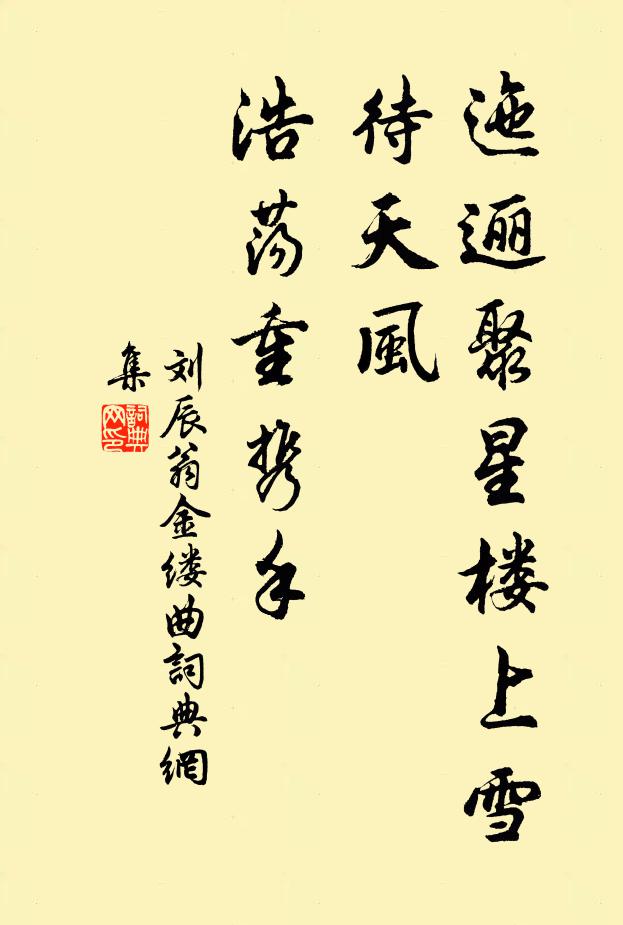 迤逦聚星楼上雪
待天風
浩荡重携手
刘辰翁金缕曲詞典網
集
詞典网印